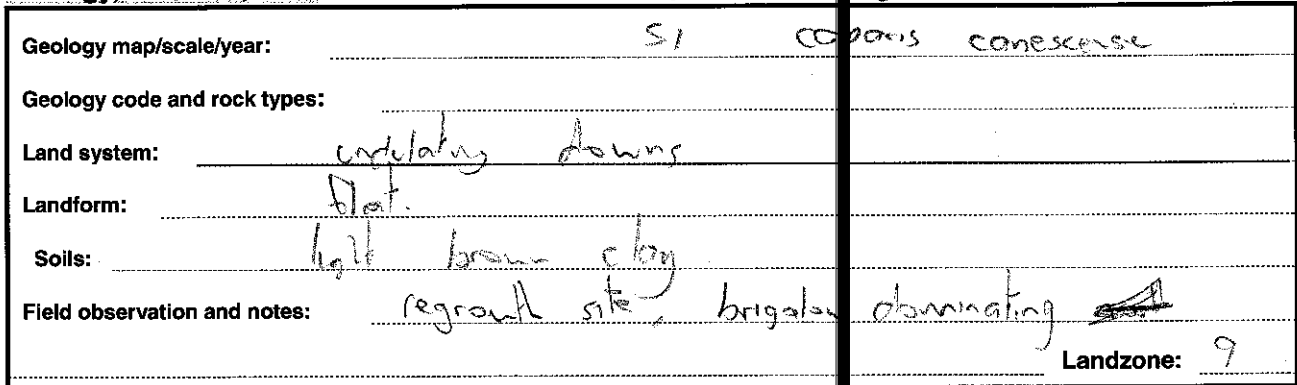 Geology map/scale/year: S1 capparis canescense
Geology code and rock types:
Land system: undulating downs
Landform: flat.
Soils: light brown clay
Field observation and notes: regrowth site, brigalow dominating
Landzone: 9